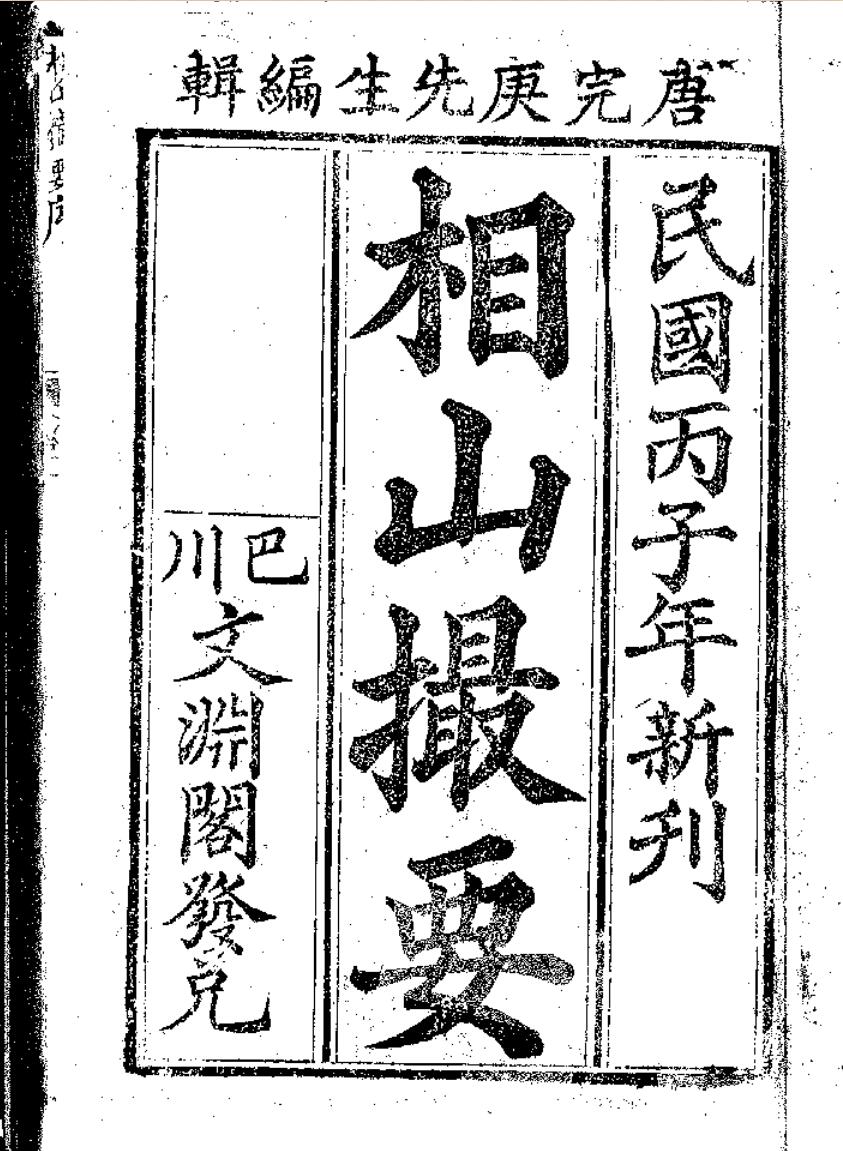 唐完庚先生編輯
民國丙子年新刊
相山撮要
巴川
文淵閣發兌